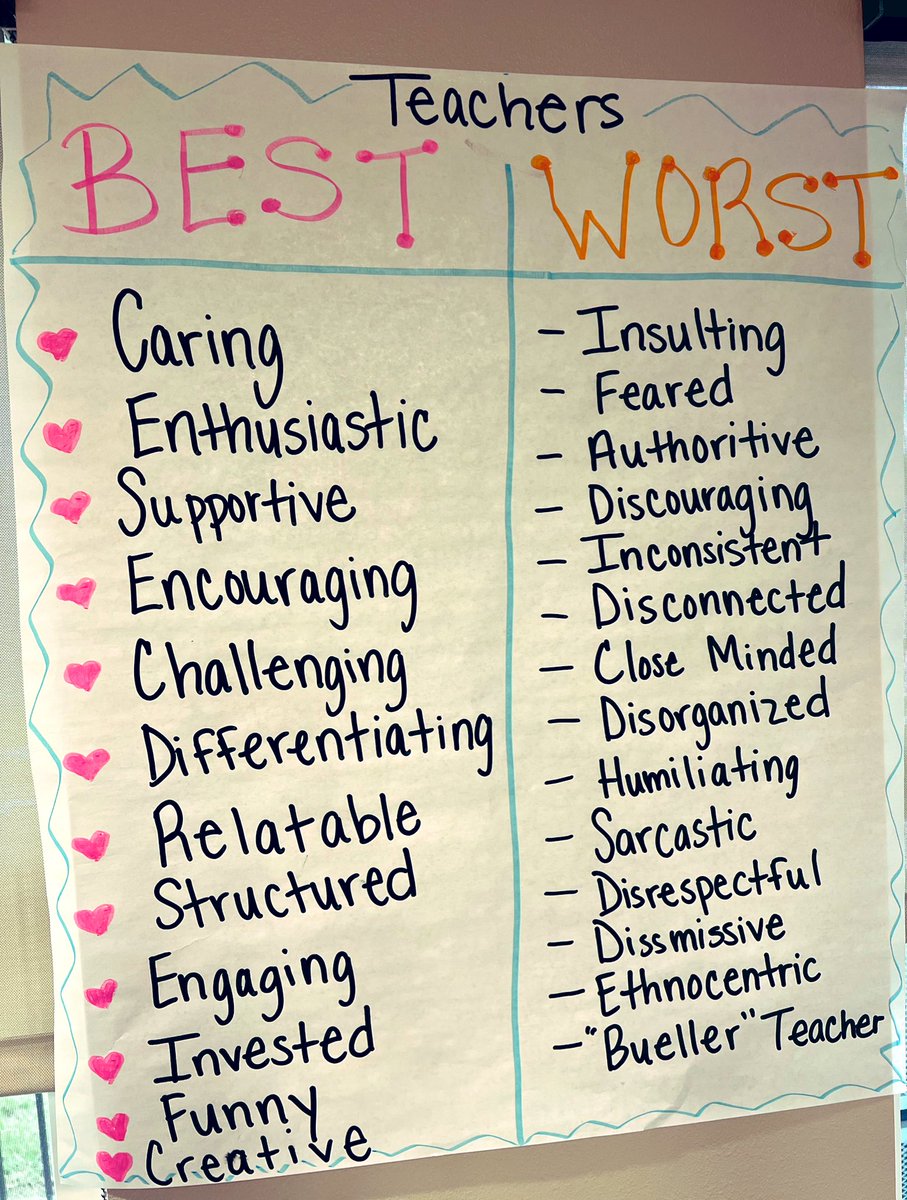 Teachers
BEST
Caring
Enthusiastic
Supportive
Encouraging
Challenging
Differentiating
Relatable
Structured
Engaging
Invested
Funny
Creative
WORST
- Insulting
- Feared
- Authoritive
- Discouraging
- Inconsistent
- Disconnected
- Close Minded
- Disorganized
- Humiliating
- Sarcastic
- Disrespectful
- Dissmissive
- Ethnocentric
- "Bueller" Teacher